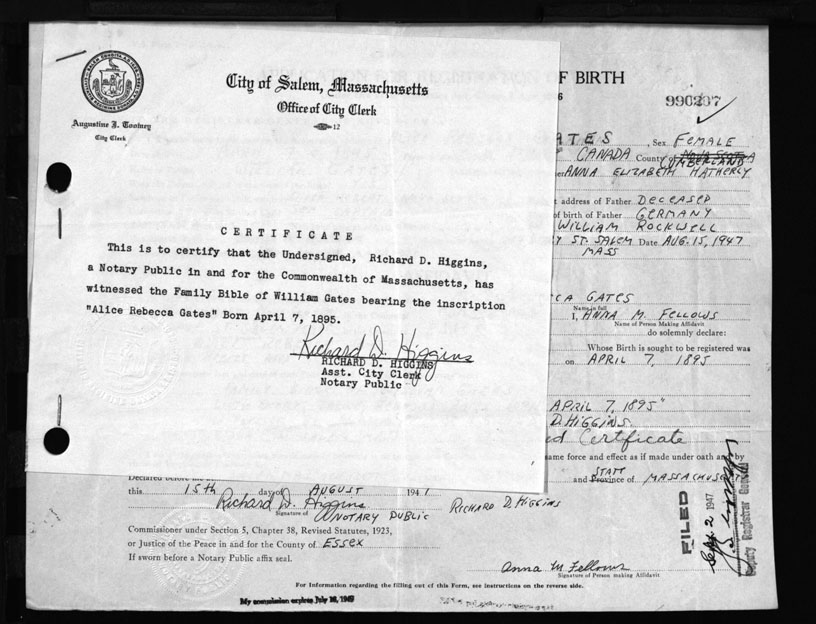 City of Salem, Massachusetts
Office of City Clerk
12
City Clerk
CERTIFICATE
This is to certify that the Undersigned, Richard D. Higgins,
a Notary Public in and for the Commonwealth of Massachusetts, has
witnessed the Family Bible of William Gates bearing the inscription
"Alice Rebecca Gates" Born April 7, 1895.
Richard D. Higgins
RICHARD D. HIGGINS
Asst. City Clerk
Notary Public
OF BIRTH
6
990207
ATES, Sex FEMALE
CANADA County of CUMBERLAND
ANNA ELIZABETH HATHERLY
address of Father DECEASED
of birth of Father GERMANY
WILLIAM ROCKWELL
Y ST. SALEM Date AUG. 15, 1947
MASS
CCA GATES
Name in full
I, ANNA M. FELLOWS
Name of Person Making Affidavit
do solemnly declare:
Whose Birth is sought to be registered was
on APRIL 7, 1895
APRIL 7, 1895"
D. HIGGINS
ed Certificate
same force and effect as if made under oath and by
STATE
and Province of MASSACHUSETTS
Declared before me
this 15th day of AUGUST 194
Richard D. Higgins RICHARD D HIGGINS
Signature of NOTARY PUBLIC
Commissioner under Section 5, Chapter 38, Revised Statutes, 1923,
or Justice of the Peace in and for the County of ESSEX
If sworn before a Notary Public affix seal.
Anna M Fellows
Signature of Person making Affidavit
For Information regarding the filling out of this Form, see instructions on the reverse side.
My commission expires July 16, 1949
FILED
Sept 2 1947
Deputy Registrar General